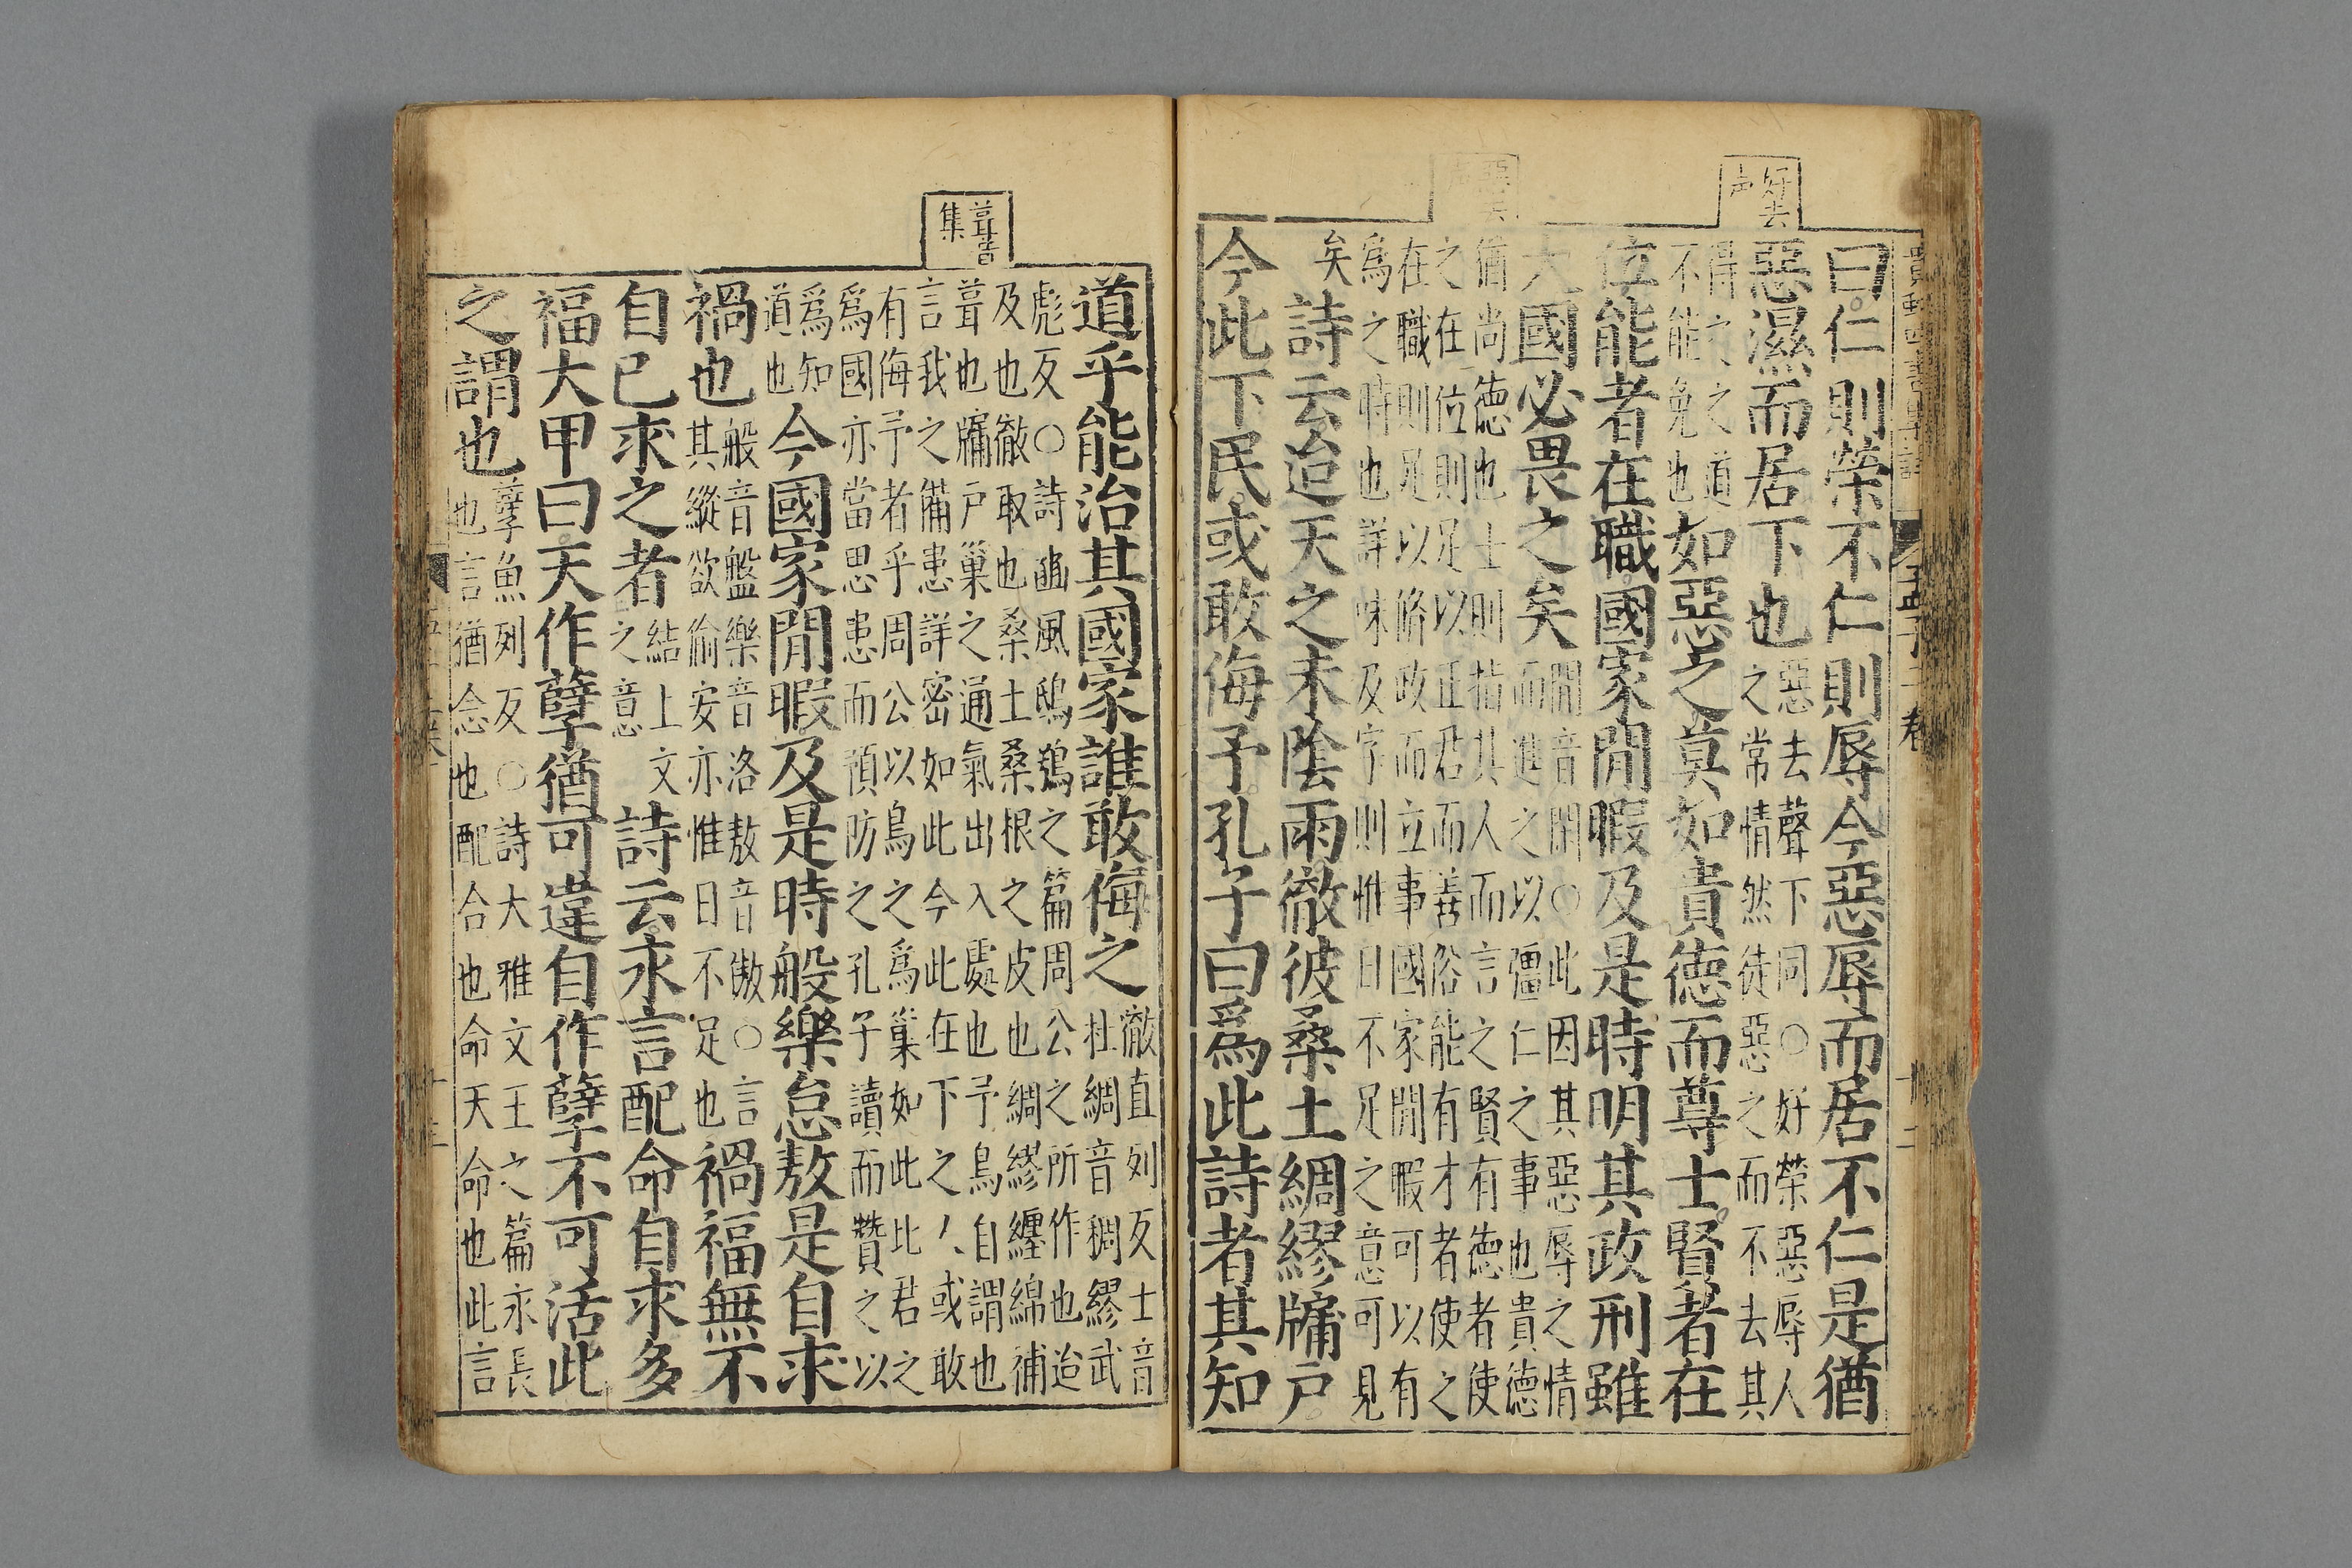 好去
声
曰仁則榮不仁則辱今惡辱而居不仁是猶
惡濕而居下也惡去聲下同○好榮惡辱人
之常情然徒惡之而不去其
得之之道
不能免也如惡之莫如貴德而尊士賢者在
位能者在職國家閒暇及是時明其政刑雖
大國必畏之矣閒音閑○此因其惡辱之情
而進之以彊仁之事也貴德
猶尚德也士則指其人而言之賢有德者使
之在位則足以正君而善俗能有才者使之
在職則足以脩政而立事國家閒暇可以有
爲之時也詳味及字則惟日不足之意可見
矣詩云迨天之未陰雨徹彼桑土綢繆牖戶
今此下民或敢侮予孔子曰爲此詩者其知
葺音
集
道乎能治其國家誰敢侮之徹直列反土音
杜綢音稠繆武
彪反○詩豳風鴟鴞之篇周公之所作也迨
及也徹取也桑土桑根之皮也綢繆纏綿補
葺也牖戶巢之通氣出入處也予鳥自謂也
言我之備患詳密如此今此在下之人或敢
有侮予者乎周公以鳥之爲巢如此比君之
爲國亦當思患而預防之孔子讀而贊之以
爲知
道也今國家閒暇及是時般樂怠敖是自求
禍也般音盤樂音洛敖音傲○言
其縱欲偷安亦惟日不足也禍福無不
自己求之者結上文
之意詩云永言配命自求多
福大甲曰天作孽猶可違自作孽不可活此
之謂也孽魚列反○詩大雅文王之篇永長
也言猶念也配合也命天命也此言